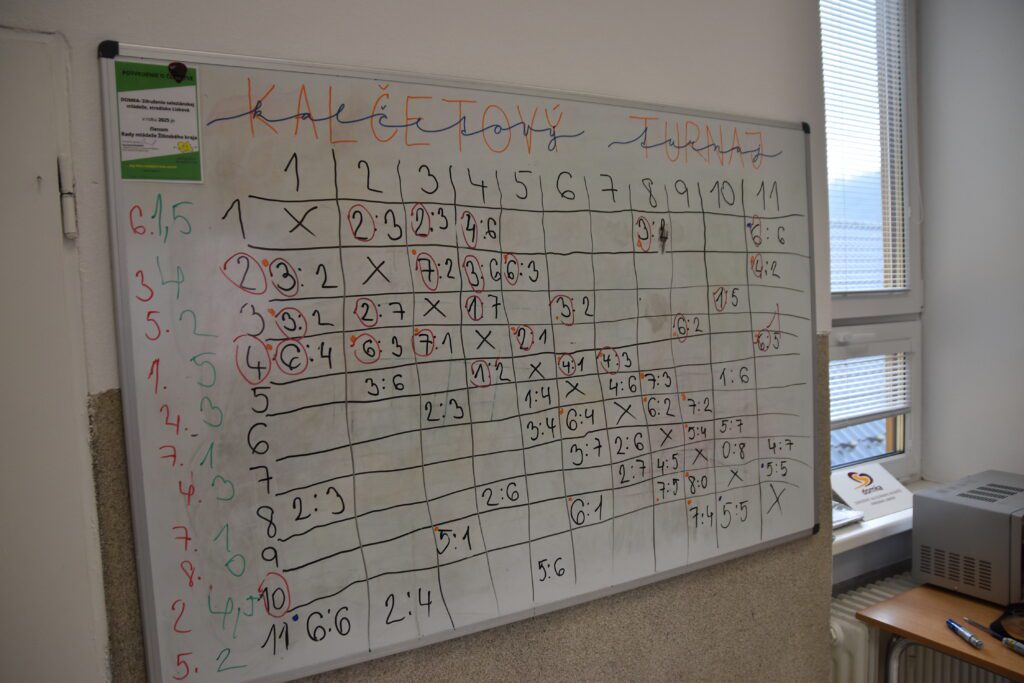 POTVRDENIE O
DOMKA- Združenie saleziánskej
mládeže, stredisko Lisková
v roku 2025 je
členom
Rady mládeže Žilinského kraja
KALČETOVÝ TURNAJ
kalčetový turnaj
1 2 3 4 5 6 7 8 9 10 11
6. 1,5 1 X 2:3 2:3 4:6 6:6
3 4 2 3:2 X 7:2 3:6 6:3 4:2
5. 2 3 3:2 2:7 X 1:7 3:2 1:5
1. 5 4 6:4 6:3 7:1 X 2:1 6:2 6:5
3 5 3:6 1:2 X 4:1 4:3
7. 1 6 2:3 1:4 X 4:6 7:3 1:6
4. 3 7 3:4 6:4 X 6:2 7:2
7. 1 8 2:3 2:6 3:7 2:6 X 5:4 5:7
8. 0 9 2:7 4:5 X 0:8 4:7
2 10 5:1 6:1 7:5 8:0 X 5:5
5. 2 11 6:6 2:4 5:6 7:4 5:5 X
domka